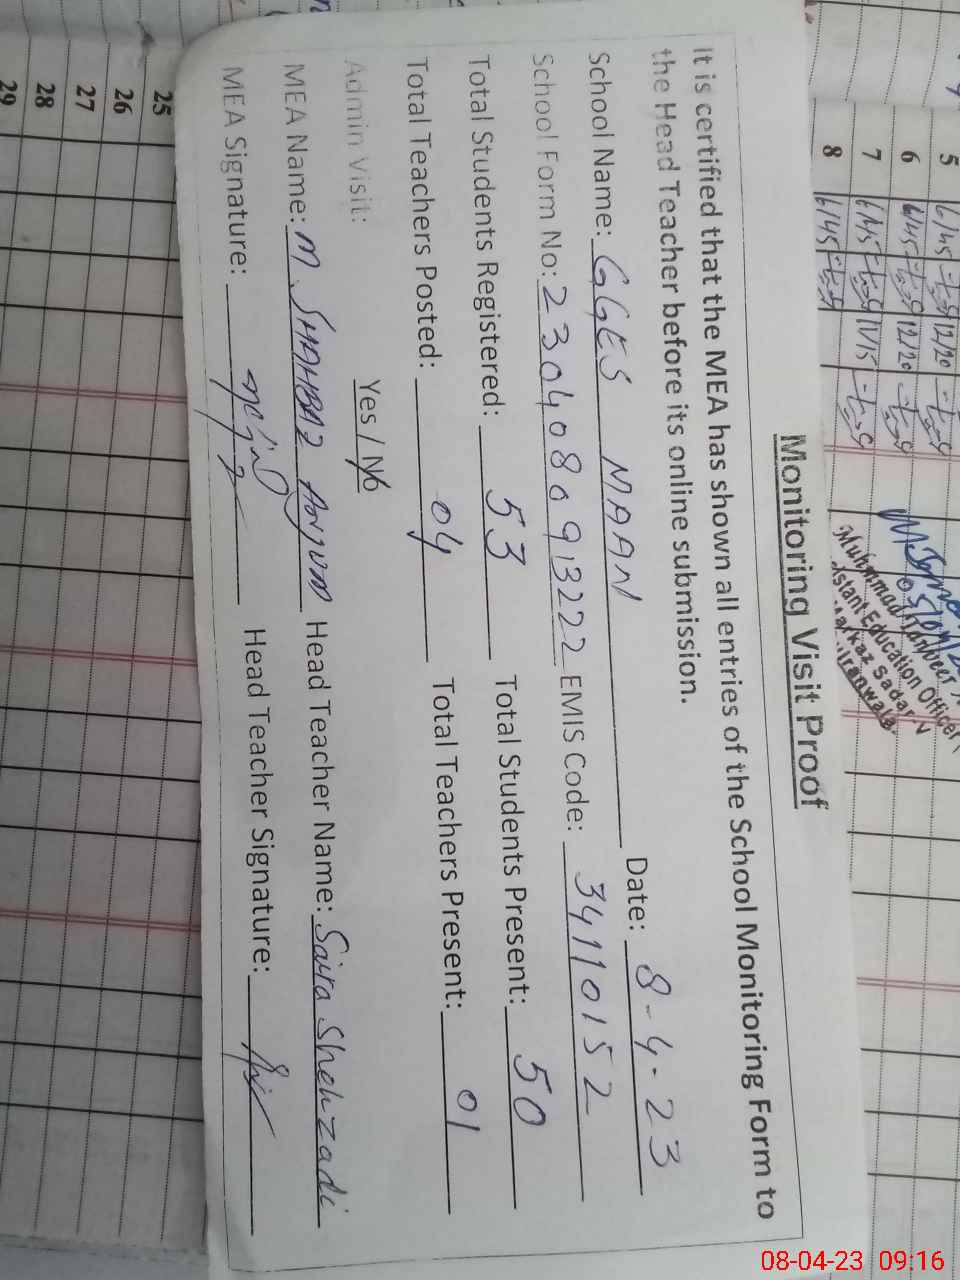 Monitoring Visit Proof
It is certified that the MEA has shown all entries of the School Monitoring Form to
the Head Teacher before its online submission.
Date: 8-4-23
School Name: GGES MAAN
School Form No: 2304080913222 EMIS Code: 34110152
Total Students Registered: 53 Total Students Present: 50
Total Teachers Posted: 04 Total Teachers Present: 01
Admin Visit: Yes / No
MEA Name: M. SHAHBAZ Anjum Head Teacher Name: Saira Shehzadi
MEA Signature: Head Teacher Signature:
5 6/45 12/20
6 6/45 12/20
7 6/45 11/15
8 6/45
Education Officer
Markaz Sadar
25
26
27
28
29
08-04-23 09:16